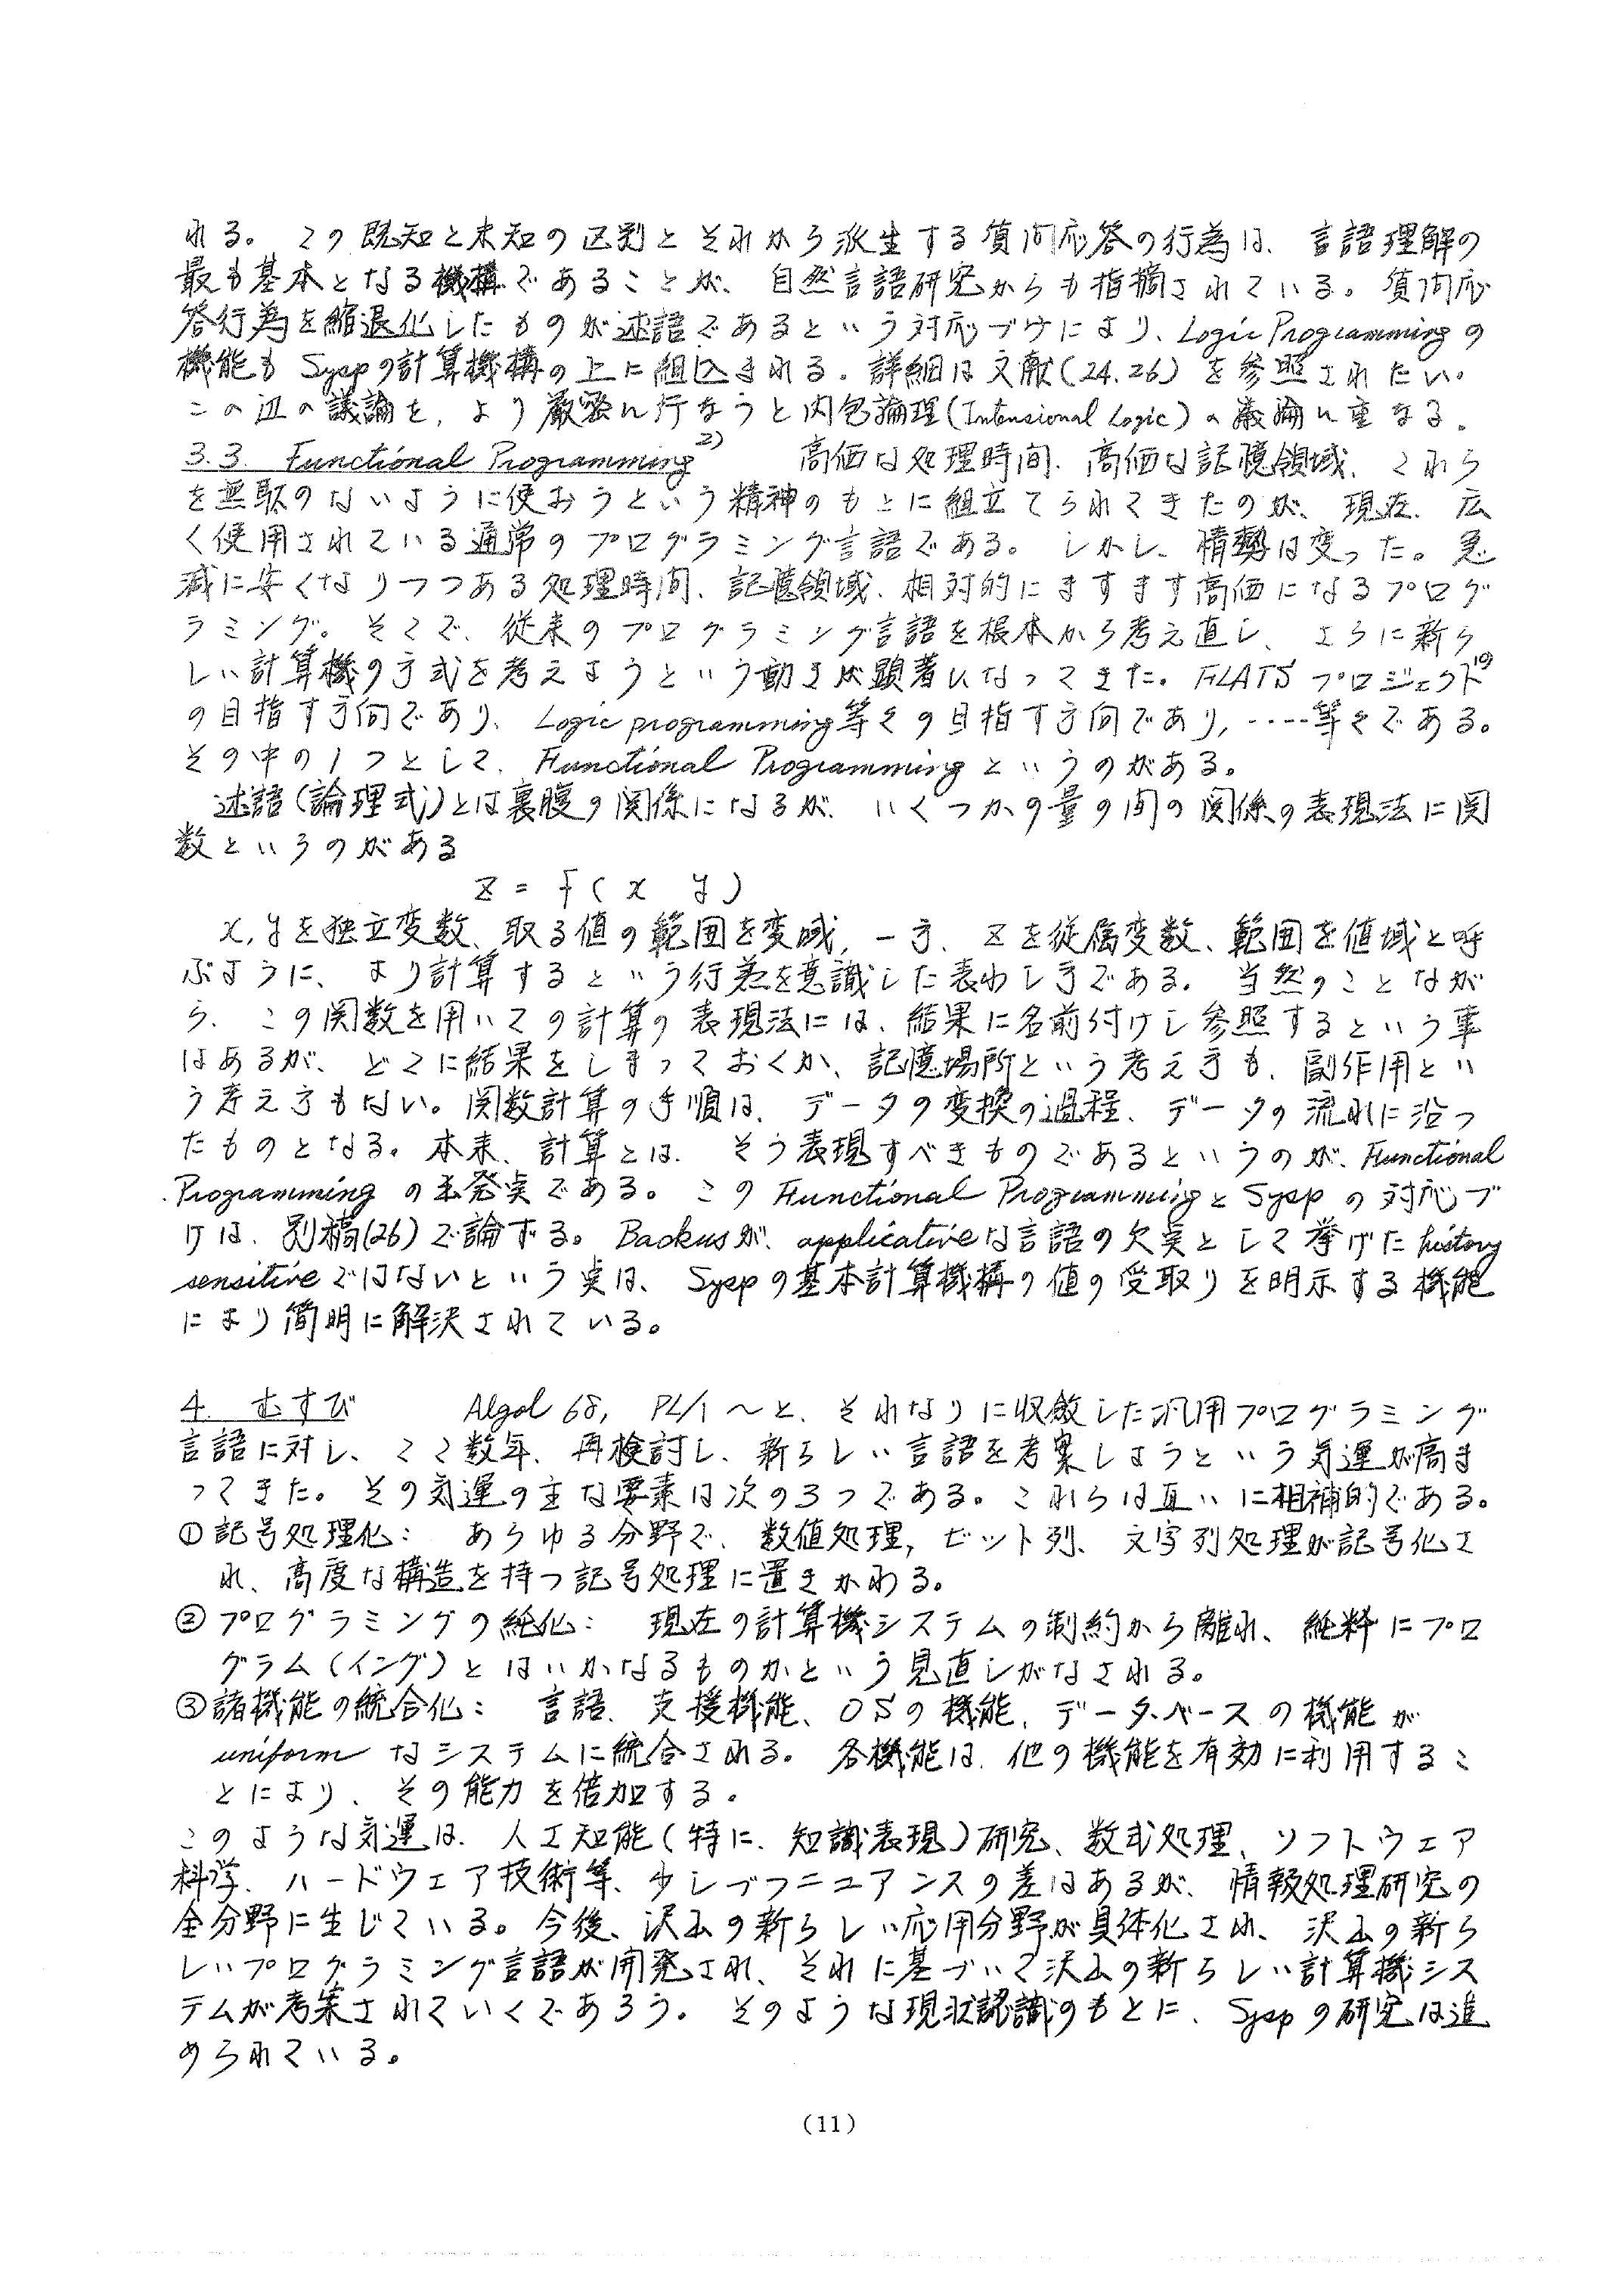 れる。この既知と未知の区別とそれから派生する質問応答の行為は、言語理解の
最も基本となる機構であることが、自然言語研究からも指摘されている。質問応
答行為を縮退化したものが述語であるという対応づけにより、Logic Programmingの
機能も Syspの計算機構の上に組込まれる。詳細は文献(24.26)を参照されたい。
この辺の議論を、より厳密に行なうと内包論理(Intensional Logic)の議論に重なる。
3.3. Functional Programming2) 高価な処理時間、高価な記憶領域、これら
を無駄のないように使おうという精神のもとに組立てられてきたのが、現在、広
く使用されている通常のプログラミング言語である。しかし、情勢は変った。急
減に安くなりつつある処理時間、記憶領域、相対的にますます高価になるプログ
ラミング。そこで、従来のプログラミング言語を根本から考え直し、さらに新ら
しい計算機の方式を考えようという動きが顕著になってきた。FLATS プロジェクト19)
の目指す方向であり、Logic programming等々の目指す方向であり,‥‥等々である。
その中の1つとして、Functional Programmingというのがある。
述語(論理式)とは裏腹の関係になるが、いくつかの量の間の関係の表現法に関
数というのがある
z = f ( x y )
x, yを独立変数、取る値の範囲を変域、一方、zを従属変数、範囲を値域と呼
ぶように、より計算するという行為を意識した表わし方である。当然のことなが
ら、この関数を用いての計算の表現法には、結果に名前付けし参照するという事
はあるが、どこに結果をしまっておくか、記憶場所という考え方も、副作用とい
う考え方もない。関数計算の手順は、データの変換の過程、データの流れに沿っ
たものとなる。本来、計算とは、そう表現すべきものであるというのが、Functional
Programming の出発点である。この Functional ProgrammingとSysp の対応づ
けは、別稿(26)で論ずる。Backusが、applicativeな言語の欠点として挙げたhistory
sensitiveではないという点は、Syspの基本計算機構の値の受取りを明示する機能
により簡明に解決されている。
4. むすび Algol 68, PL/1 〜と、それなりに収斂した汎用プログラミング
言語に対し、ここ数年、再検討し、新らしい言語を考案しようという気運が高ま
ってきた。その気運の主な要素は次の3つである。これらは互いに相補的である。
①記号処理化: あらゆる分野で、数値処理, ビット列、文字列処理が記号化さ
れ、高度な構造を持つ記号処理に置きかわる。
②プログラミングの純化: 現在の計算機システムの制約から離れ、純粋にプロ
グラム(イング)とはいかなるものかという見直しがなされる。
③諸機能の統合化: 言語、支援機能、OSの機能、データ・ベースの機能が
uniform なシステムに統合される。各機能は、他の機能を有効に利用するこ
とにより、その能力を倍加する。
このような気運は、人工知能(特に、知識表現)研究、数式処理、ソフトウェア
科学、ハードウェア技術等、少しづつニュアンスの差はあるが、情報処理研究の
全分野に生じている。今後、沢山の新らしい応用分野が具体化され、沢山の新ら
しいプログラミング言語が開発され、それに基づいて沢山の新らしい計算機シス
テムが考案されていくであろう。そのような現状認識のもとに、Syspの研究は進
められている。
(11)